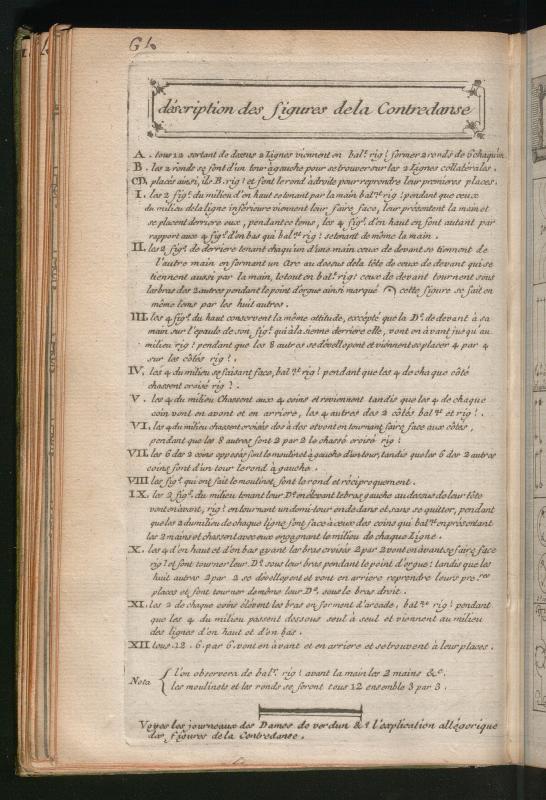 64.
déscription des figures dela Contredanse
A. tous 12 sortant de dessus 2 Lignes viennent en bal.ᵗ rig.ᵗ former 2 ronds de 6 chaqu'un
B. les 2 ronds se font d'un tour à gauche pour se trouver sur les 2 Lignes collatérales.
CD. placés ainsi, ils B. rig.ᵗ et font le rond à droite pour reprendre leur premieres places.
I. les 2 fig.ˢ du milieu d'en haut se tenant par la main bal.ⁿᵗ rig.ᵗ pendant que ceux
du milieu de la ligne inférieure viennent leur faire face, leur présentent la main et
se placent derriere eux, pendant ce tems, les 4 fig.ˢ d'en haut en font autant par
rapport aux 4 fig.ˢ d'en bas qui bal.ⁿᵗ rig.ᵗ se tenant de même la main.
II. les 2 fig.ˢ de derriere tenant chaqu'un d'une main ceux de devant se tiennent de
l'autre main en formant un arc au dessus de la tête de ceux de devant qui se
tiennent aussi par la main, le tout en bal.ⁿᵗ rig.ᵗ ceux de devant tournent sous
les bras des 2 autres pendant le point d'orgue ainsi marqué 𝄐 cette figure se fait en
même tems par les huit autres.
III. les 4 fig.ˢ du haut conservent la même attitude, excépté que la D.ᵉ de devant à sa
main sur l'épaule de son fig.ᵗ qui à la sienne derriere elle, vont en avant jusqu'au
milieu rig.ᵗ pendant que les 8 autres se dévellopent et viennent se placer 4 par 4
sur les côtés rig.ᵗ.
IV. les 4 du milieu se faisant face, bal.ⁿᵗ rig.ᵗ pendant que les 4 de chaque côté
chassent croisé rig.ᵗ.
V. les 4 du milieu Chassent aux 4 coins et reviennent tandis que les 4 de chaque
coin vont en avant et en arriere, les 4 autres des 2 côtés bal.ⁿᵗ et rig.ᵗ.
VI. les 4 du milieu chassent croisés dos à dos et vont en tournant faire face aux côtés,
pendant que les 8 autres font 2 par 2 le chassé croisé rig.ᵗ
VII. les 6 des 2 coins opposés font le moulinet à gauche d'un tour, tandis que les 6 des 2 autres
coins font d'un tour le rond à gauche.
VIII les fig.ˢ qui ont fait le moulinet, font le rond et réciproquement.
IX. les 2 fig.ˢ du milieu tenant leur D.ᵉ en élevant le bras gauche au dessus de leur tête
vont en avant, rig.ᵗ en tournant un demi-tour en dedans et, sans se quitter, pendant
que les 2 du milieu de chaque ligne font face à ceux des coins qui bal.ⁿᵗ en présentant
les 2 mains et chassent avec eux en gagnant le milieu de chaque Ligne.
X. les 4 d'en haut et d'en bas ayant les bras croisés 2 par 2 vont en avant se faire face
rig.ᵗ et font tourner leur D.ᵉ sous leur bras pendant le point d'orgue: tandis que les
huit autres 2 par 2 se dévellopent et vont en arriere reprendre leurs pre.ʳᵉˢ
places et font tourner de même leur D.ᵉ, sous le bras droit.
XI. les 2 de chaque coins élèvent les bras en forment d'arcade, bal.ⁿᵗ rig.ᵗ pendant
que les 4 du milieu passent dessous seul à seul et viennent au milieu
des lignes d'en haut et d'en bas.
XII tous .12. 6. par 6. vont en avant et en arriere et se trouvent à leur places.
Nota { l'on observera de bal.ʳ rig.ᵗ avant la main les 2 mains &.ᶜ.
les moulinets et les ronds se feront tous 12 ensemble 3 par 3.
Voyés les journeaux des Dames de verdun &.ᵗ l'explication allégorique
des figures de la Contredanse.